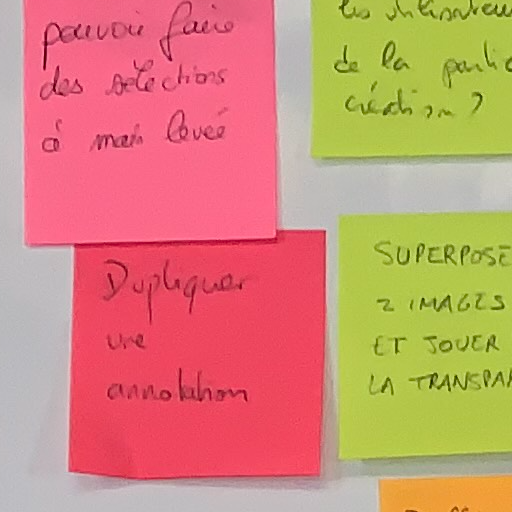 pouvoir faire
des sélections
à main levée
de la
création ?
Dupliquer
une
annotation
SUPERPOSE
2 IMAGES
ET JOUER
LA TRANSPA